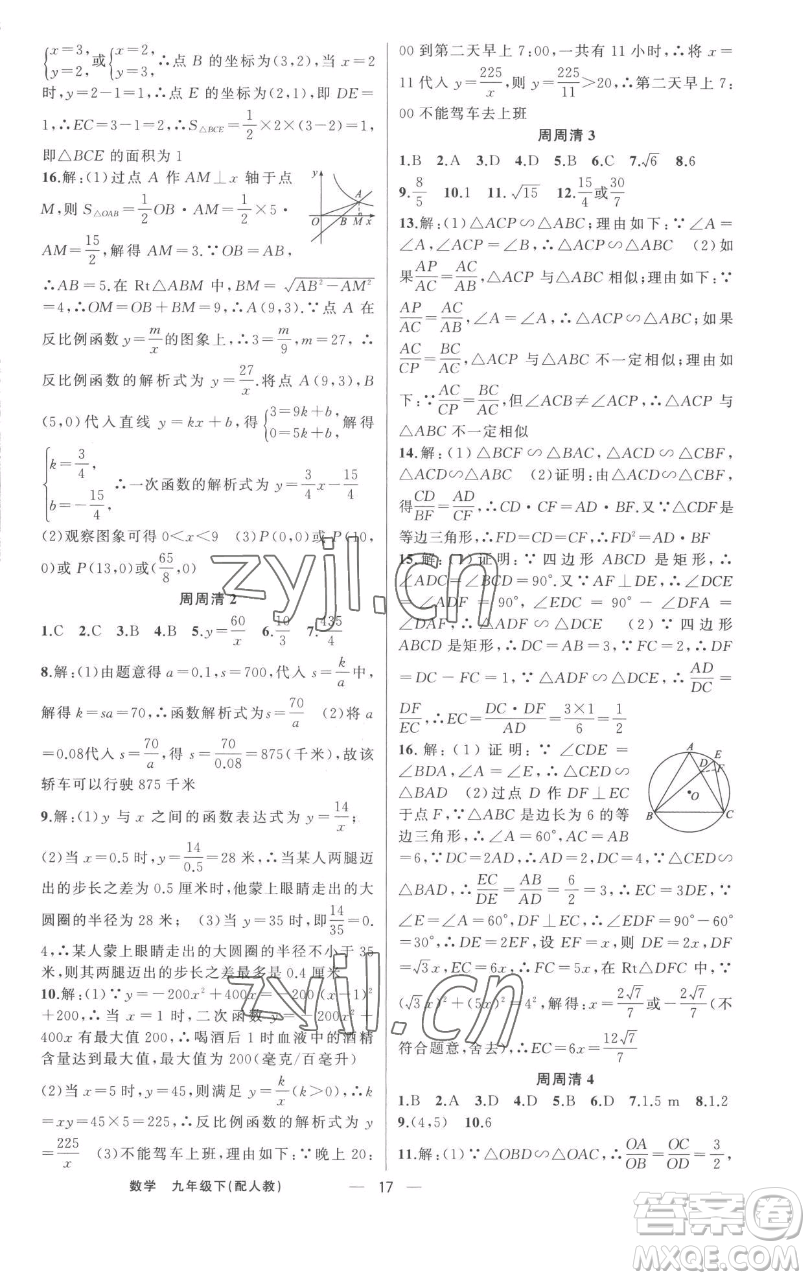 {x=3, y=2, 或{x=2, y=3, ∴点 B 的坐标为(3,2),当 x=2
时,y=2-1=1,∴点 E 的坐标为(2,1),即 DE=
1,∴EC=3-1=2,∴S△BCE=1/2×2×(3-2)=1,
即△BCE 的面积为 1
16.解:(1)过点 A 作 AM⊥x 轴于点
M,则 S△OAB=1/2OB·AM=1/2×5·
AM=15/2,解得 AM=3.∵OB=AB,
∴AB=5.在 Rt△ABM 中,BM=√(AB²-AM²)
=4,∴OM=OB+BM=9,∴A(9,3).∵点 A 在
反比例函数 y=m/x的图象上,∴3=m/9,m=27,∴
反比例函数的解析式为 y=27/x.将点 A(9,3),B
(5,0)代入直线 y=kx+b,得{3=9k+b, 0=5k+b, 解得
{k=3/4, b=-15/4, ∴一次函数的解析式为 y=3/4x-15/4
(2)观察图象可得 0<x<9 (3)P(0,0)或 P(10,
0)或 P(13,0)或(65/8,0)
周周清 2
1.C 2.C 3.B 4.B 5.y=60/x 6.10/3 7.135/4
8.解:(1)由题意得 a=0.1,s=700,代入 s=k/a中,
解得 k=sa=70,∴函数解析式为s=70/a (2)将 a
=0.08代入 s=70/a,得 s=70/0.08=875(千米),故该
轿车可以行驶 875 千米
9.解:(1)y 与 x 之间的函数表达式为 y=14/x;
(2)当 x=0.5 时,y=14/0.5=28 米,∴当某人两腿迈
出的步长之差为 0.5 厘米时,他蒙上眼睛走出的大
圆圈的半径为 28 米; (3)当 y=35 时,即14/35=0.
4,∴某人蒙上眼睛走出的大圆圈的半径不小于 35
米,则其两腿迈出的步长之差最多是 0.4 厘米
10.解:(1)∵y=-200x²+400x=-200(x-1)²
+200,∴当 x=1 时,二次函数 y=-200x²+
400x 有最大值 200,∴喝酒后 1 时血液中的酒精
含量达到最大值,最大值为 200(毫克/百毫升)
(2)当 x=5 时,y=45,则满足 y=k/x(k>0),∴k
=xy=45×5=225,∴反比例函数的解析式为 y=
225/x (3)不能驾车上班,理由如下:∵晚上 20:
00 到第二天早上 7:00,一共有 11 小时,∴将 x=
11 代入 y=225/x,则 y=225/11>20,∴第二天早上 7:
00 不能驾车去上班
周周清 3
1.B 2.A 3.D 4.D 5.B 6.C 7.√6 8.6
9.8/5 10.1 11.√15 12.15/4或30/7
13.解:(1)△ACP∽△ABC;理由如下:∵∠A=
∠A,∠ACP=∠B,∴△ACP∽△ABC (2)如
果AP/AC=AC/AB,△ACP 与△ABC 相似;理由如下:∵
AP/AC=AC/AB,∠A=∠A,∴△ACP∽△ABC;如果
AC/CP=BC/AC,△ACP 与△ABC 不一定相似;理由如
下:∵AC/CP=BC/AC,但∠ACB≠∠ACP,∴△ACP 与
△ABC 不一定相似
14.解:(1)△BCF∽△BAC,△ACD∽△CBF,
△ACD∽△ABC (2)证明:∵△ACD∽△CBF,
得CD/BF=AD/CF,∴CD·CF=AD·BF.又∵△CDF是
等边三角形,∴FD=CD=CF,∴FD²=AD·BF
15.解:(1)证明:∵四边形 ABCD 是矩形,∴
∠ADC=∠BCD=90°.又∵AF⊥DE,∴∠ADF
+∠DAF=90°,∠EDC=90°-∠DFA=
∠DAF,∴△ADF∽△DCE (2)∵四边形
ABCD 是矩形,∴DC=AB=3,∵FC=2,∴DF
=DC-FC=1.∵△ADF∽△DCE,∴AD/DC=
DF/EC,∴EC=DC·DF/AD=3×1/6=1/2
16.解:(1)证明:∵∠CDE=
∠BDA,∠A=∠E,∴△DCE∽
△BAD (2)过点 D 作 DF⊥EC
于点 F,∵△ABC 是边长为 6 的等
边三角形,∴∠A=60°,AC=AB
=6,∵DC=2AD,∴AD=2,DC=4,∵△DCE∽
△BAD,∴EC/DE=AB/AD=6/2=3,∴EC=3DE,∵
∠E=∠A=60°,DF⊥EC,∴∠EDF=90°-60°
=30°,∴DE=2EF,设 EF=x,则 DE=2x,DF=
√3x,EC=6x,∴FC=5x,在 Rt△DFC 中,∵
(√3x)²+(5x)²=4²,解得:x=2√7/7或-2√7/7(不
符合题意,舍去),∴EC=6x=12√7/7
周周清 4
1.B 2.A 3.C 4.D 5.B 6.D 7.1.5 m 8.1.2
9.(4,5) 10.6
11.解:(1)∵△OBD∽△OAC,∴OA/OB=OC/OD=3/2,
数学 九年级下(配人教) — 17 —
zyjl.cn
zyjl.cn
答案圈
MXQE.COM